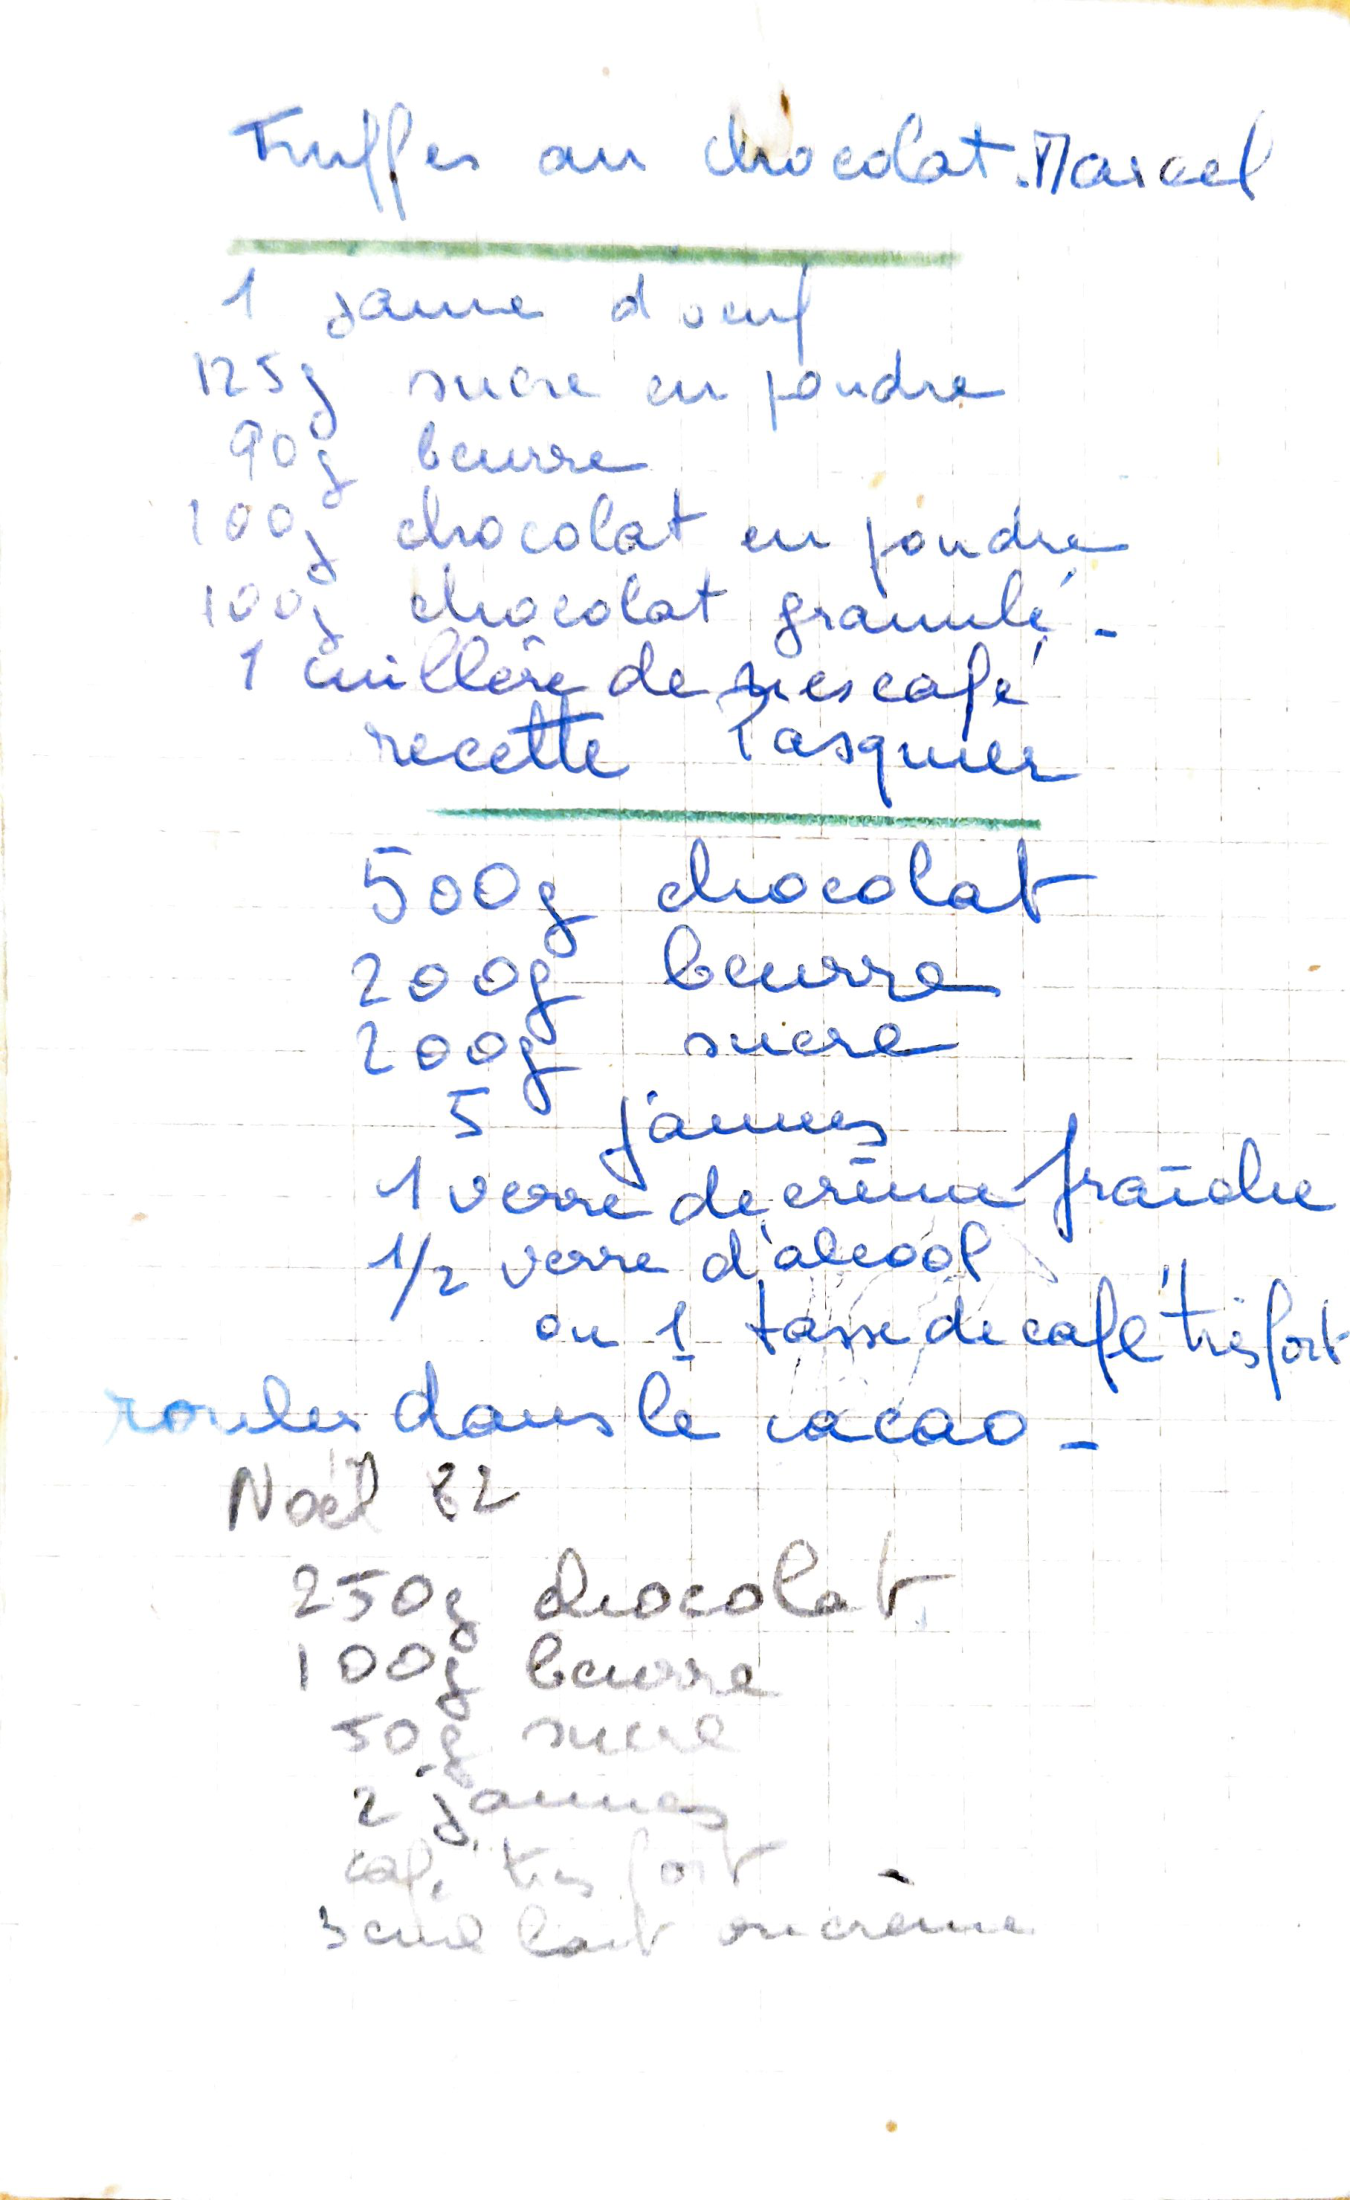 Truffes au chocolat. Marcel
1 jaune d'oeuf
125g sucre en poudre
90g beurre
100g chocolat en poudre
100g chocolat granulé -
1 cuillère de nescafé
recette Pasquier
500g chocolat
200g beurre
200g sucre
5 jaunes
1 verre de crème fraîche
1/2 verre d'alcool
ou 1 tasse de café très fort
rouler dans le cacao -
Noël 82
250g chocolat
100g beurre
50g sucre
2 jaunes
café très fort
3 cuil lait ou crème